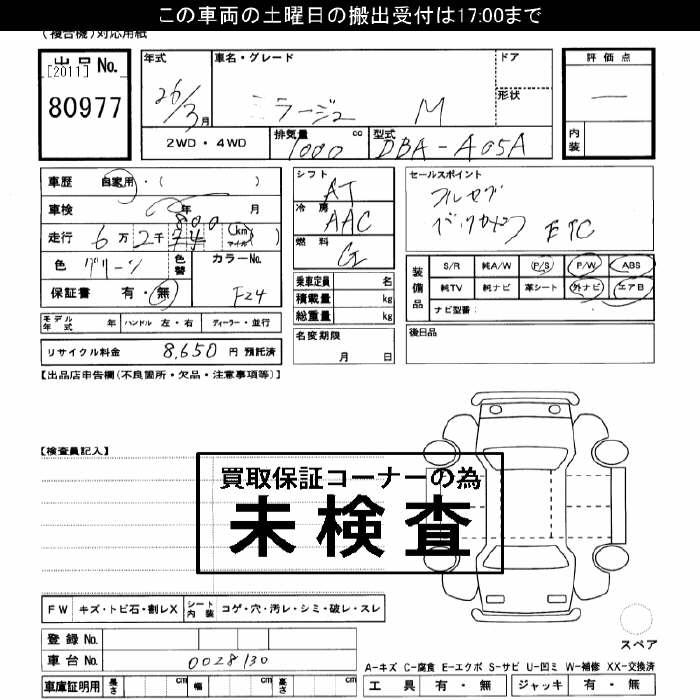 この車両の土曜日の搬出受付は17:00まで
(複合機)対応用紙
出品 No.
[2011]
80977
年式
26/3月
車名・グレード
ミラージュ M
ドア
形状
評価点
—
内装
2WD・4WD
排気量 1000 cc
型式 DBA-A05A
車歴 自家用・( )
車検 年 月
走行 6万2千800 (km マイル)
色 グリーン
色替
カラーNo. F24
保証書 有・無
シフト AT
冷房 AAC
燃料 G
乗車定員 名
積載量 kg
総重量 kg
セールスポイント
フルセグ
バックカメラ ETC
装備品
S/R 純A/W P/S P/W ABS
純TV 純ナビ 革シート 外ナビ エアB
ナビ型番
モデル年式 年 ハンドル 左・右 ディーラー・並行
名変期限 月 日
後日品
リサイクル料金 8,650 円 預託済
【出品店申告欄(不良箇所・欠品・注意事項等)】
【検査員記入】
買取保証コーナーの為
未検査
FW キズ・トビ石・割レX シート内装 コゲ・穴・汚レ・シミ・破レ・スレ
登録 No.
車台 No. 0028130
スペア
A-キズ C-腐食 E-エクボ S-サビ U-凹ミ W-補修 XX-交換済
車庫証明用 長さ cm 幅 cm 高さ cm
工具 有・無 ジャッキ 有・無